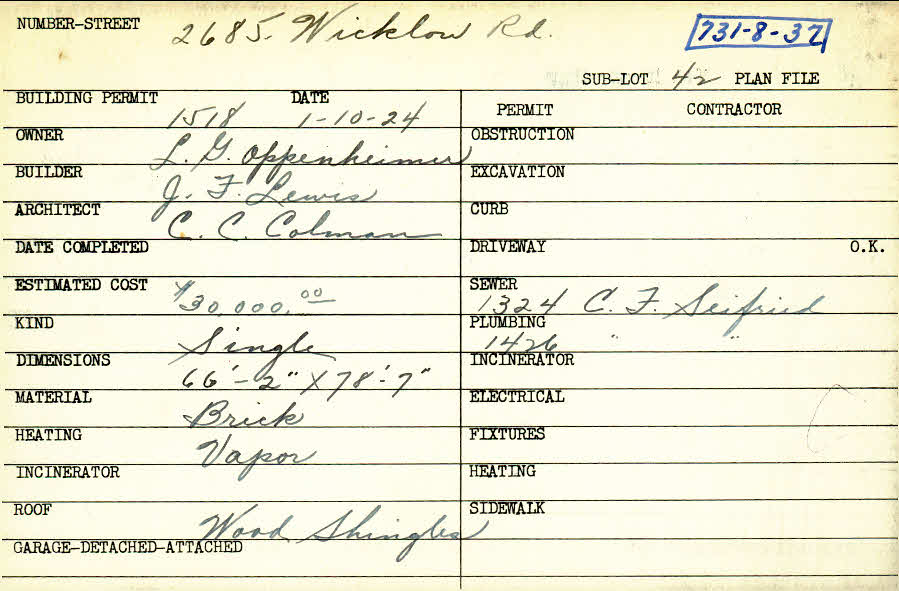 NUMBER-STREET 2685 Wicklow Rd. 731-8-37
SUB-LOT 42 PLAN FILE
BUILDING PERMIT 1518 DATE 1-10-24
PERMIT CONTRACTOR
OWNER L. G. Oppenheimer
OBSTRUCTION
BUILDER J. F. Lewis
EXCAVATION
ARCHITECT C. C. Colman
CURB
DATE COMPLETED
DRIVEWAY O.K.
ESTIMATED COST $30,000.00
SEWER 1324 C. F. Seifried
KIND Single
PLUMBING 1426 " "
DIMENSIONS 66'-2" X 78'-7"
INCINERATOR
MATERIAL Brick
ELECTRICAL
HEATING Vapor
FIXTURES
INCINERATOR
HEATING
ROOF Wood Shingles
SIDEWALK
GARAGE-DETACHED-ATTACHED